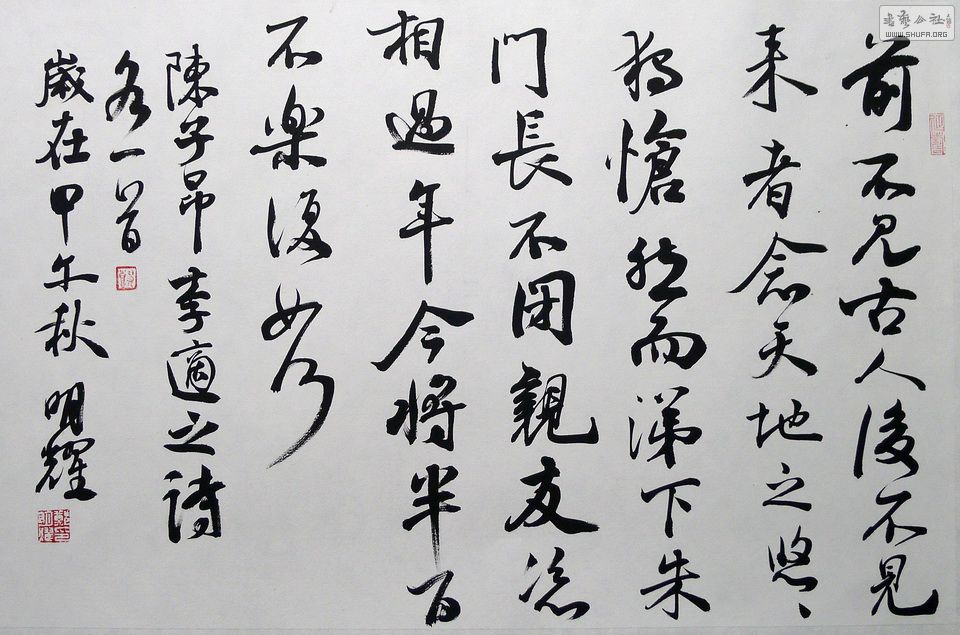 書藝公社
WWW.SHUFA.ORG
前不見古人後不見
来者念天地之悠〻
獨愴然而涕下朱
門長不閉親友恣
相過年今将半百
不楽復如何
陳子昂李適之詩
各一首
歲在甲午秋 明耀